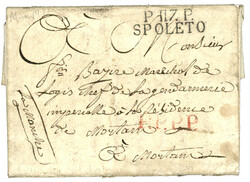 P.117.P.
SPOLETO
Monsieur
Bazire Marechal de
Logis Chef de la gendarmerie
imperialle à la Residence
de Mortain
P.P.P.P
à Mortain
La Manche